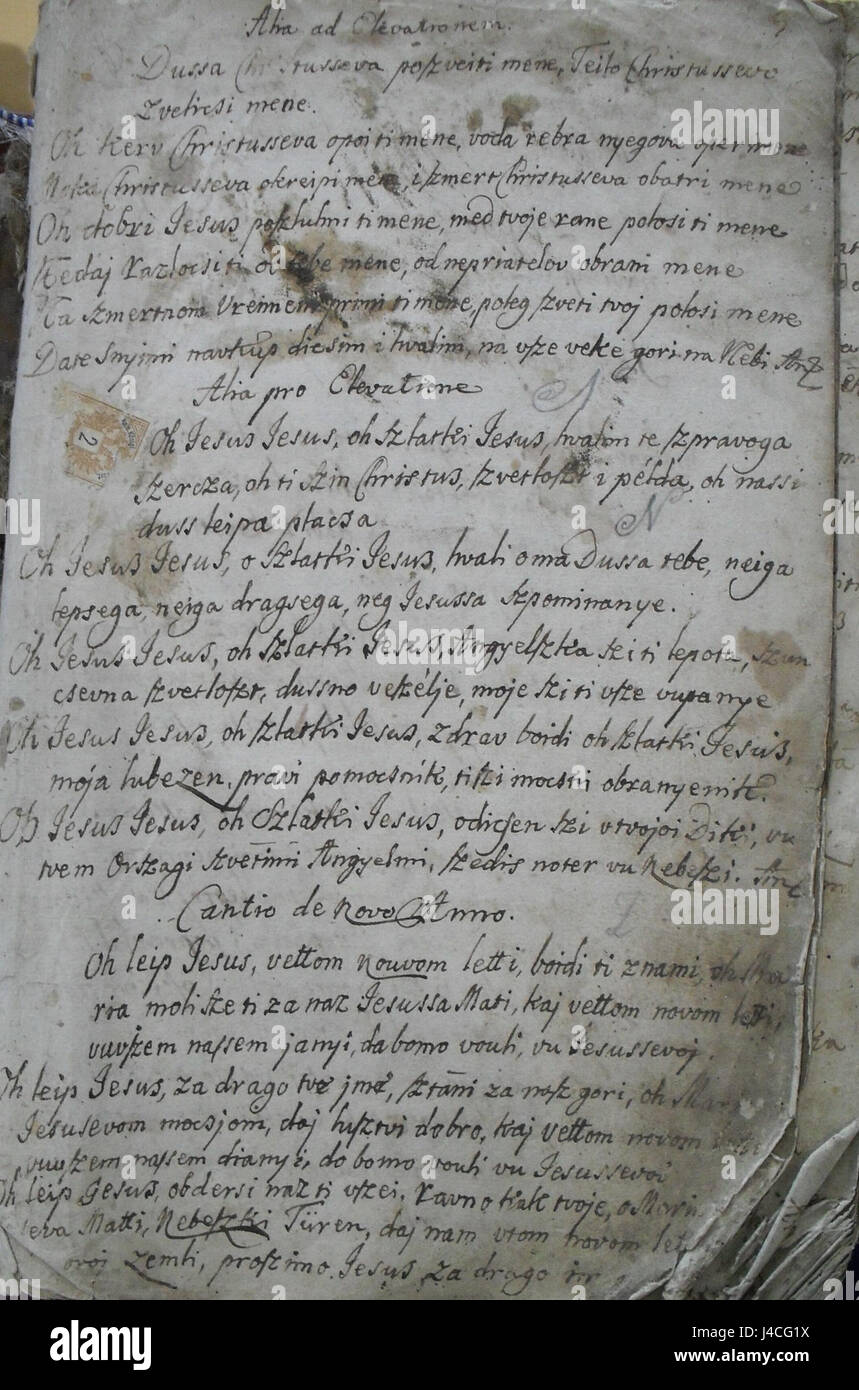 Alia ad Elevationem.
Dussa Christusseva poſzveiti mene, Teilo Christussevo
zvelicsi mene.
Oh kerv Christusseva opoi ti mene, voda rebra nyegova oper mene
Moka Christusseva okreipi mene, i ſzmert Christusseva obatri mene
Oh dobri Jesus poſzluhni ti mene, med tvoje rane polosi ti mene
Nedaj razlocsiti od tebe mene, od nepriatelov obrani mene
Na szmertnom vreimeni primi ti mene, poleg ſzveti tvoj polosi mene
Da te snyimi navkup dicsim i hvalim, na vſze veke gori na Nebi
Alia pro Elevatione
2
Oh Jesus Jesus, oh ſzlatki Jesus, hvalim te ſzpravoga
ſzercza, oh ti ſzin Christus, ſzvetloſzt i példa, oh nassi
duss leipa placsa
Oh Jesus Jesus, o ſzlatki Jesus, hvali oma Dussa tebe, neiga
lepsega, neiga dragsega, neg Jesussa ſzpominanye.
Oh Jesus Jesus, oh ſzlatki Jesus, Angyelſzka ſzi ti lepota, ſzun
csevna ſzvetloſzt, dussno veſzélje, moje ſzi ti vſze vupanye
Oh Jesus Jesus, oh ſzlatki Jesus, zdrav boidi oh ſzlatki Jesus,
moja lubezen, pravi pomocsnik, ti ſzi mocsni obranyenik.
Oh Jesus Jesus, oh ſzlatki Jesus, odicsen ſzi v tvojoi Diki, vu
tvem Orszagi ſzvetimi Angyelmi, ſzedis noter vu Nebeſzi.
Cantio de Novo Anno.
Oh leip Jesus, vettom nouvom letti, boidi ti z nami, oh Ma
ria moli ſze ti za naz Jesussa Mati, kaj vettom novom letti,
vuvſzem naſsem janyi, da bomo vouli, vu Jesussevoj.
Oh leip Jesus, za drago tvo jme, ſztani za naſz gori, oh
Jesusevom mocsjom, daj luſztvi dobro, kaj vettom novom
vuvſzem naſsem dianyi, da bomo vouli vu Jesussevoi
Oh leip Jesus, obdersi naz ti vſzei, ravno kak tvoje, o Mari
seva Matti, Nebeſzki Türen, daj nam vtom novom let
ovoj zemli, proſzimo Jesus, za drago
alamy stock photo
alamy
www.alamy.com
J4CG1X